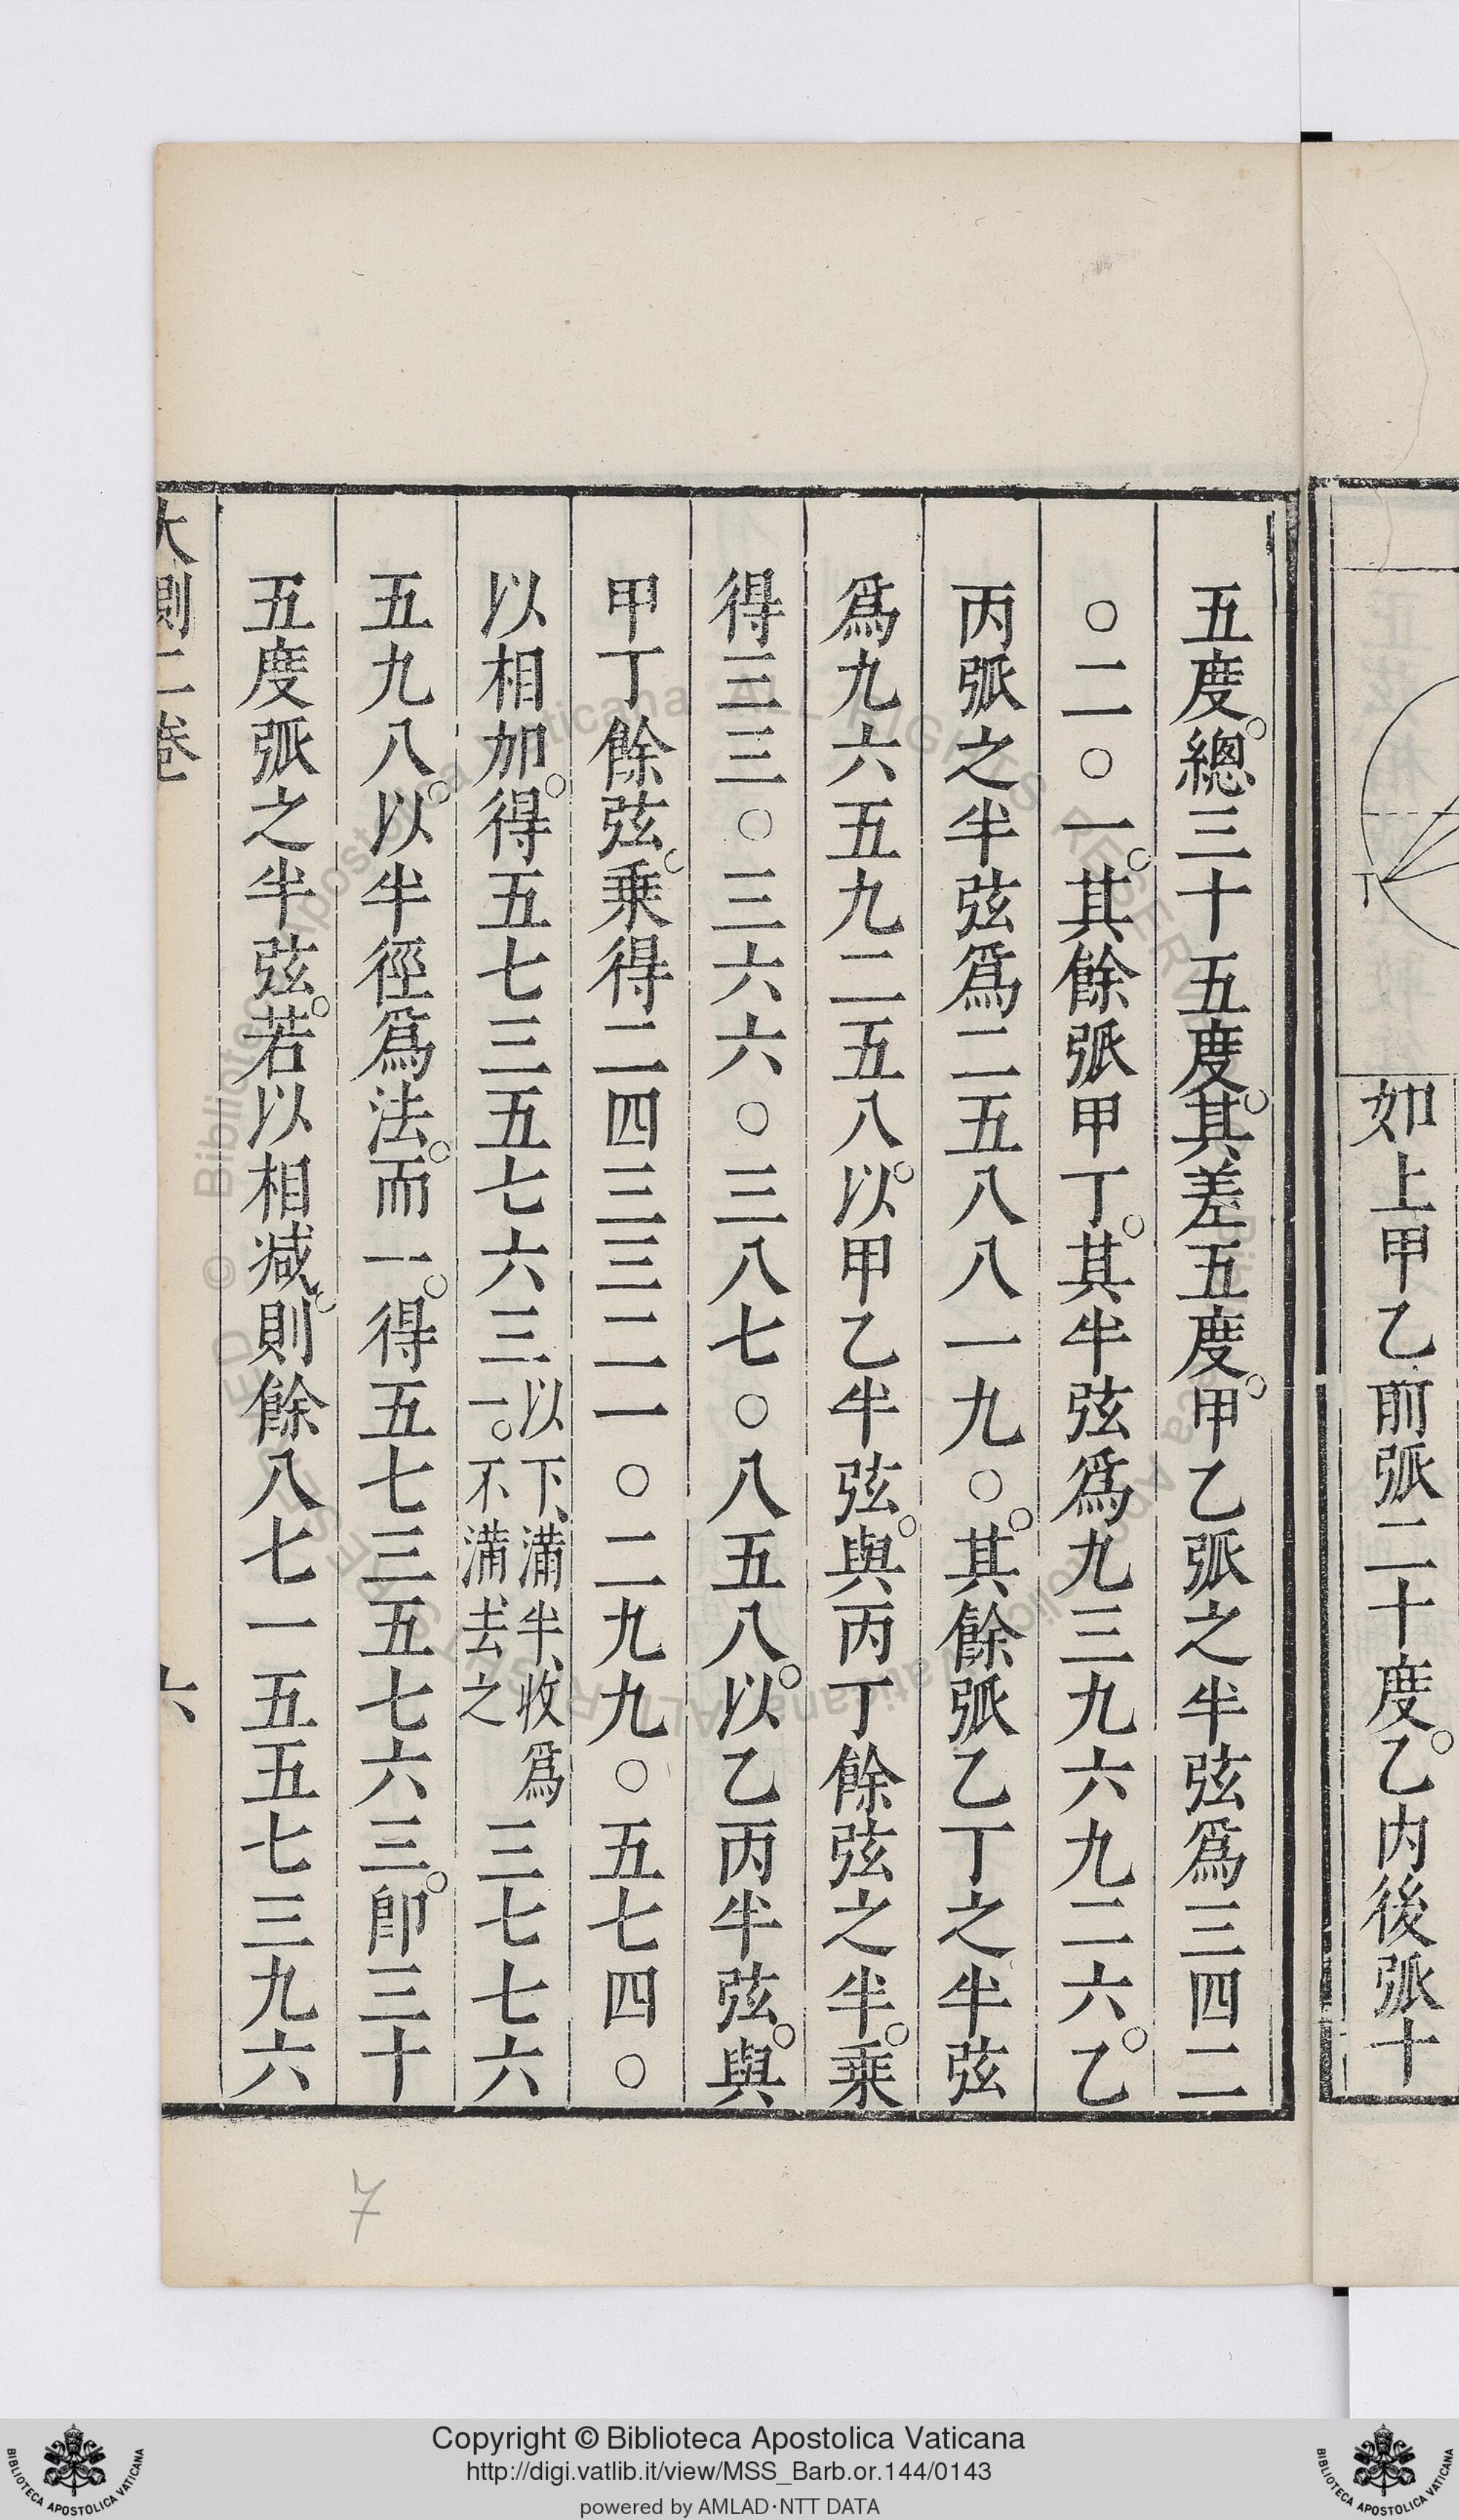 如上甲乙前弧二十度。乙内後弧十
丁
五度。總三十五度。其差五度。甲乙弧之半弦爲三四二
〇二〇一。其餘弧甲丁。其半弦爲九三九六九二六。乙
丙弧之半弦爲二五八八一九〇。其餘弧乙丁之半弦
爲九六五九二五八。以甲乙半弦。與丙丁餘弦之半。乘
得三三〇三六六〇三八七〇八五八。以乙丙半弦。與
甲丁餘弦。乘得二四三三二一〇二九九〇五七四〇
以相加。得五七三五七六三以下、滿半、收爲一。不滿、去之三七七六
五九八。以半徑爲法。而一。得五七三五七六三。卽三十
五度弧之半弦。若以相減。則餘八七一五五七三九六
大測二卷
六
7
Copyright © Biblioteca Apostolica Vaticana
http://digi.vatlib.it/view/MSS_Barb.or.144/0143
powered by AMLAD·NTT DATA
BIBLIOTECA APOSTOLICA VATICANA
BIBLIOTECA APOSTOLICA VATICANA